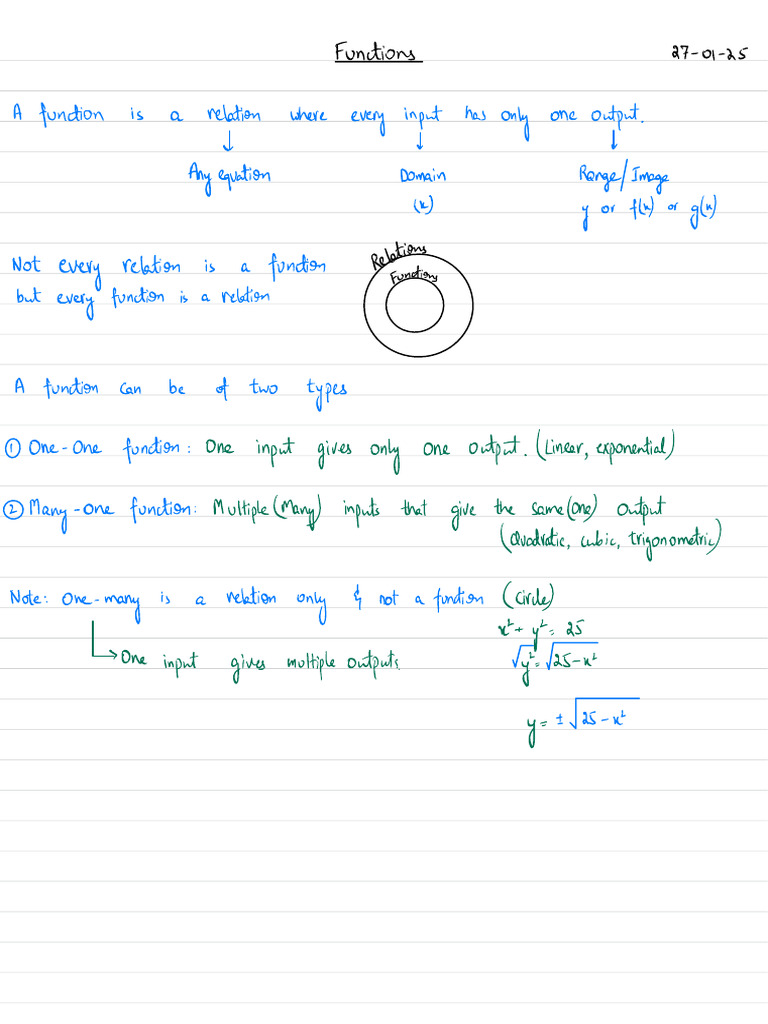 Functions
27-01-25
A function is a relation where every input has only one output.
↓ ↓ ↓
Any equation Domain Range/Image
(x) y or f(x) or g(x)
Not every relation is a function
but every function is a relation
Relations
Functions
A function can be of two types
① One-One function: One input gives only one output. (Linear, exponential)
② Many-one function: Multiple (Many) inputs that give the same (one) output
(Quadratic, cubic, trigonometric)
Note: One-many is a relation only & not a function (Circle)
x² + y² = 25
→ One input gives multiple outputs.
√y² = √25-x²
y = ± √25-x²